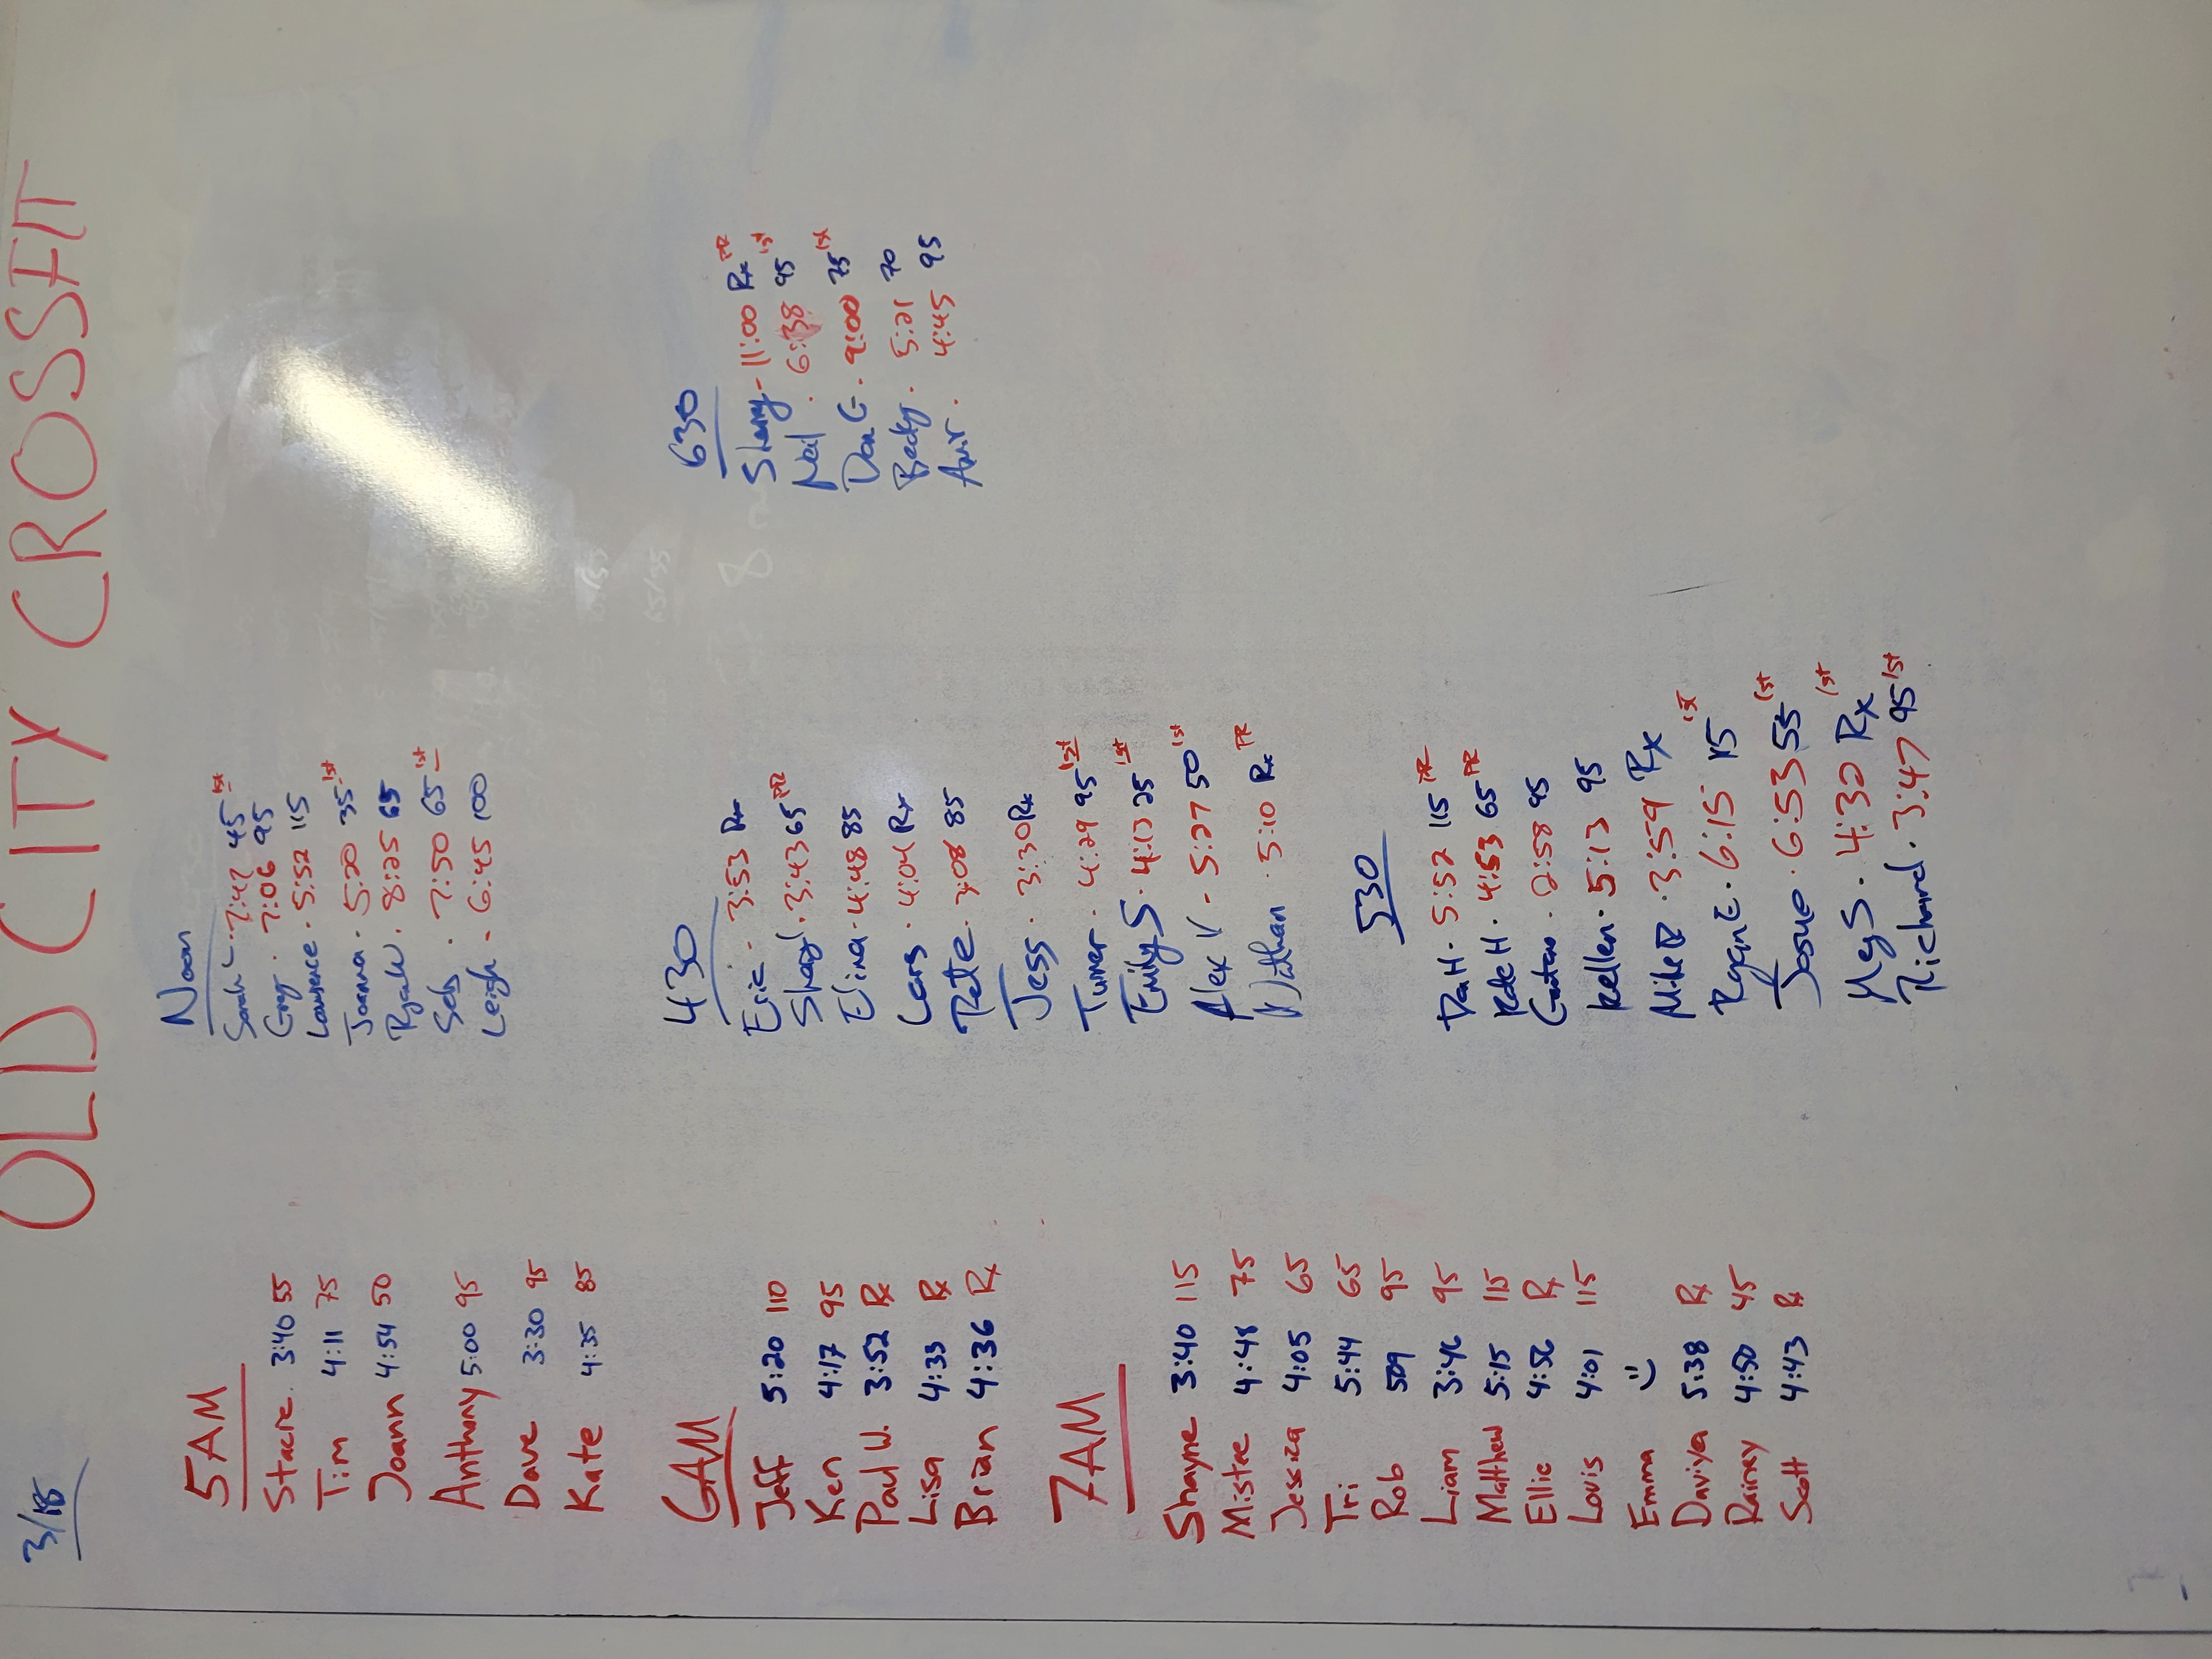 OLD CITY CROSSFIT
3/18
5AM
Stacie. 3:40 55
Tim 4:11 75
Joann 4:54 50
Anthony 5:00 95
Dave 3:30 95
Kate 4:35 85
6AM
Jeff 5:20 110
Ken 4:17 95
Paul W. 3:52 Rx
Lisa 4:33 Rx
Brian 4:36 Rx
7AM
Shayne 3:40 115
Mistee 4:48 75
Jessica 4:05 65
Tri 5:44 65
Rob 509 95
Liam 3:46 95
Matthew 5:15 115
Ellie 4:56 Rx
Louis 4:01 115
Emma
Daviya 5:38 Rx
Rainey 4:50 45
Scott 4:43 Rx
Noon
7:47 45 1st
Greg . 7:06 95
Lawrence . 5:52 115
Joanna . 5:20 35 1st
Ryan W . 8:25 65
. 7:50 65 1st
Leigh - 6:45 100
430
Eric . 3:53 Rx
Sheryl . 3:43 65 PR
Elina . 4:48 85
Lars . 4:04 Rx
Pete . 3:08 85
Jess . 3:30 Rx
Turner . 4:29 95 1st
Emily S . 4:13 25 1st
Alex V - 5:27 50 1st
Nathan . 5:10 Rx PR
530
Dan H . 5:52 115 PR
Kate H . 4:53 65 PR
2:58 95
Kellen . 5:13 95
Mike R . 3:59 Rx
Regan E . 6:15 45 1st
Josue . 6:53 55 1st
Meg S . 4:30 Rx 1st
Richard . 3:47 95 1st
630
11:00 Rx PR
Neil . 6:38 45 1st
Dan G . 9:00 75 1st
Becky . 5:21 70
Amr . 4:45 95